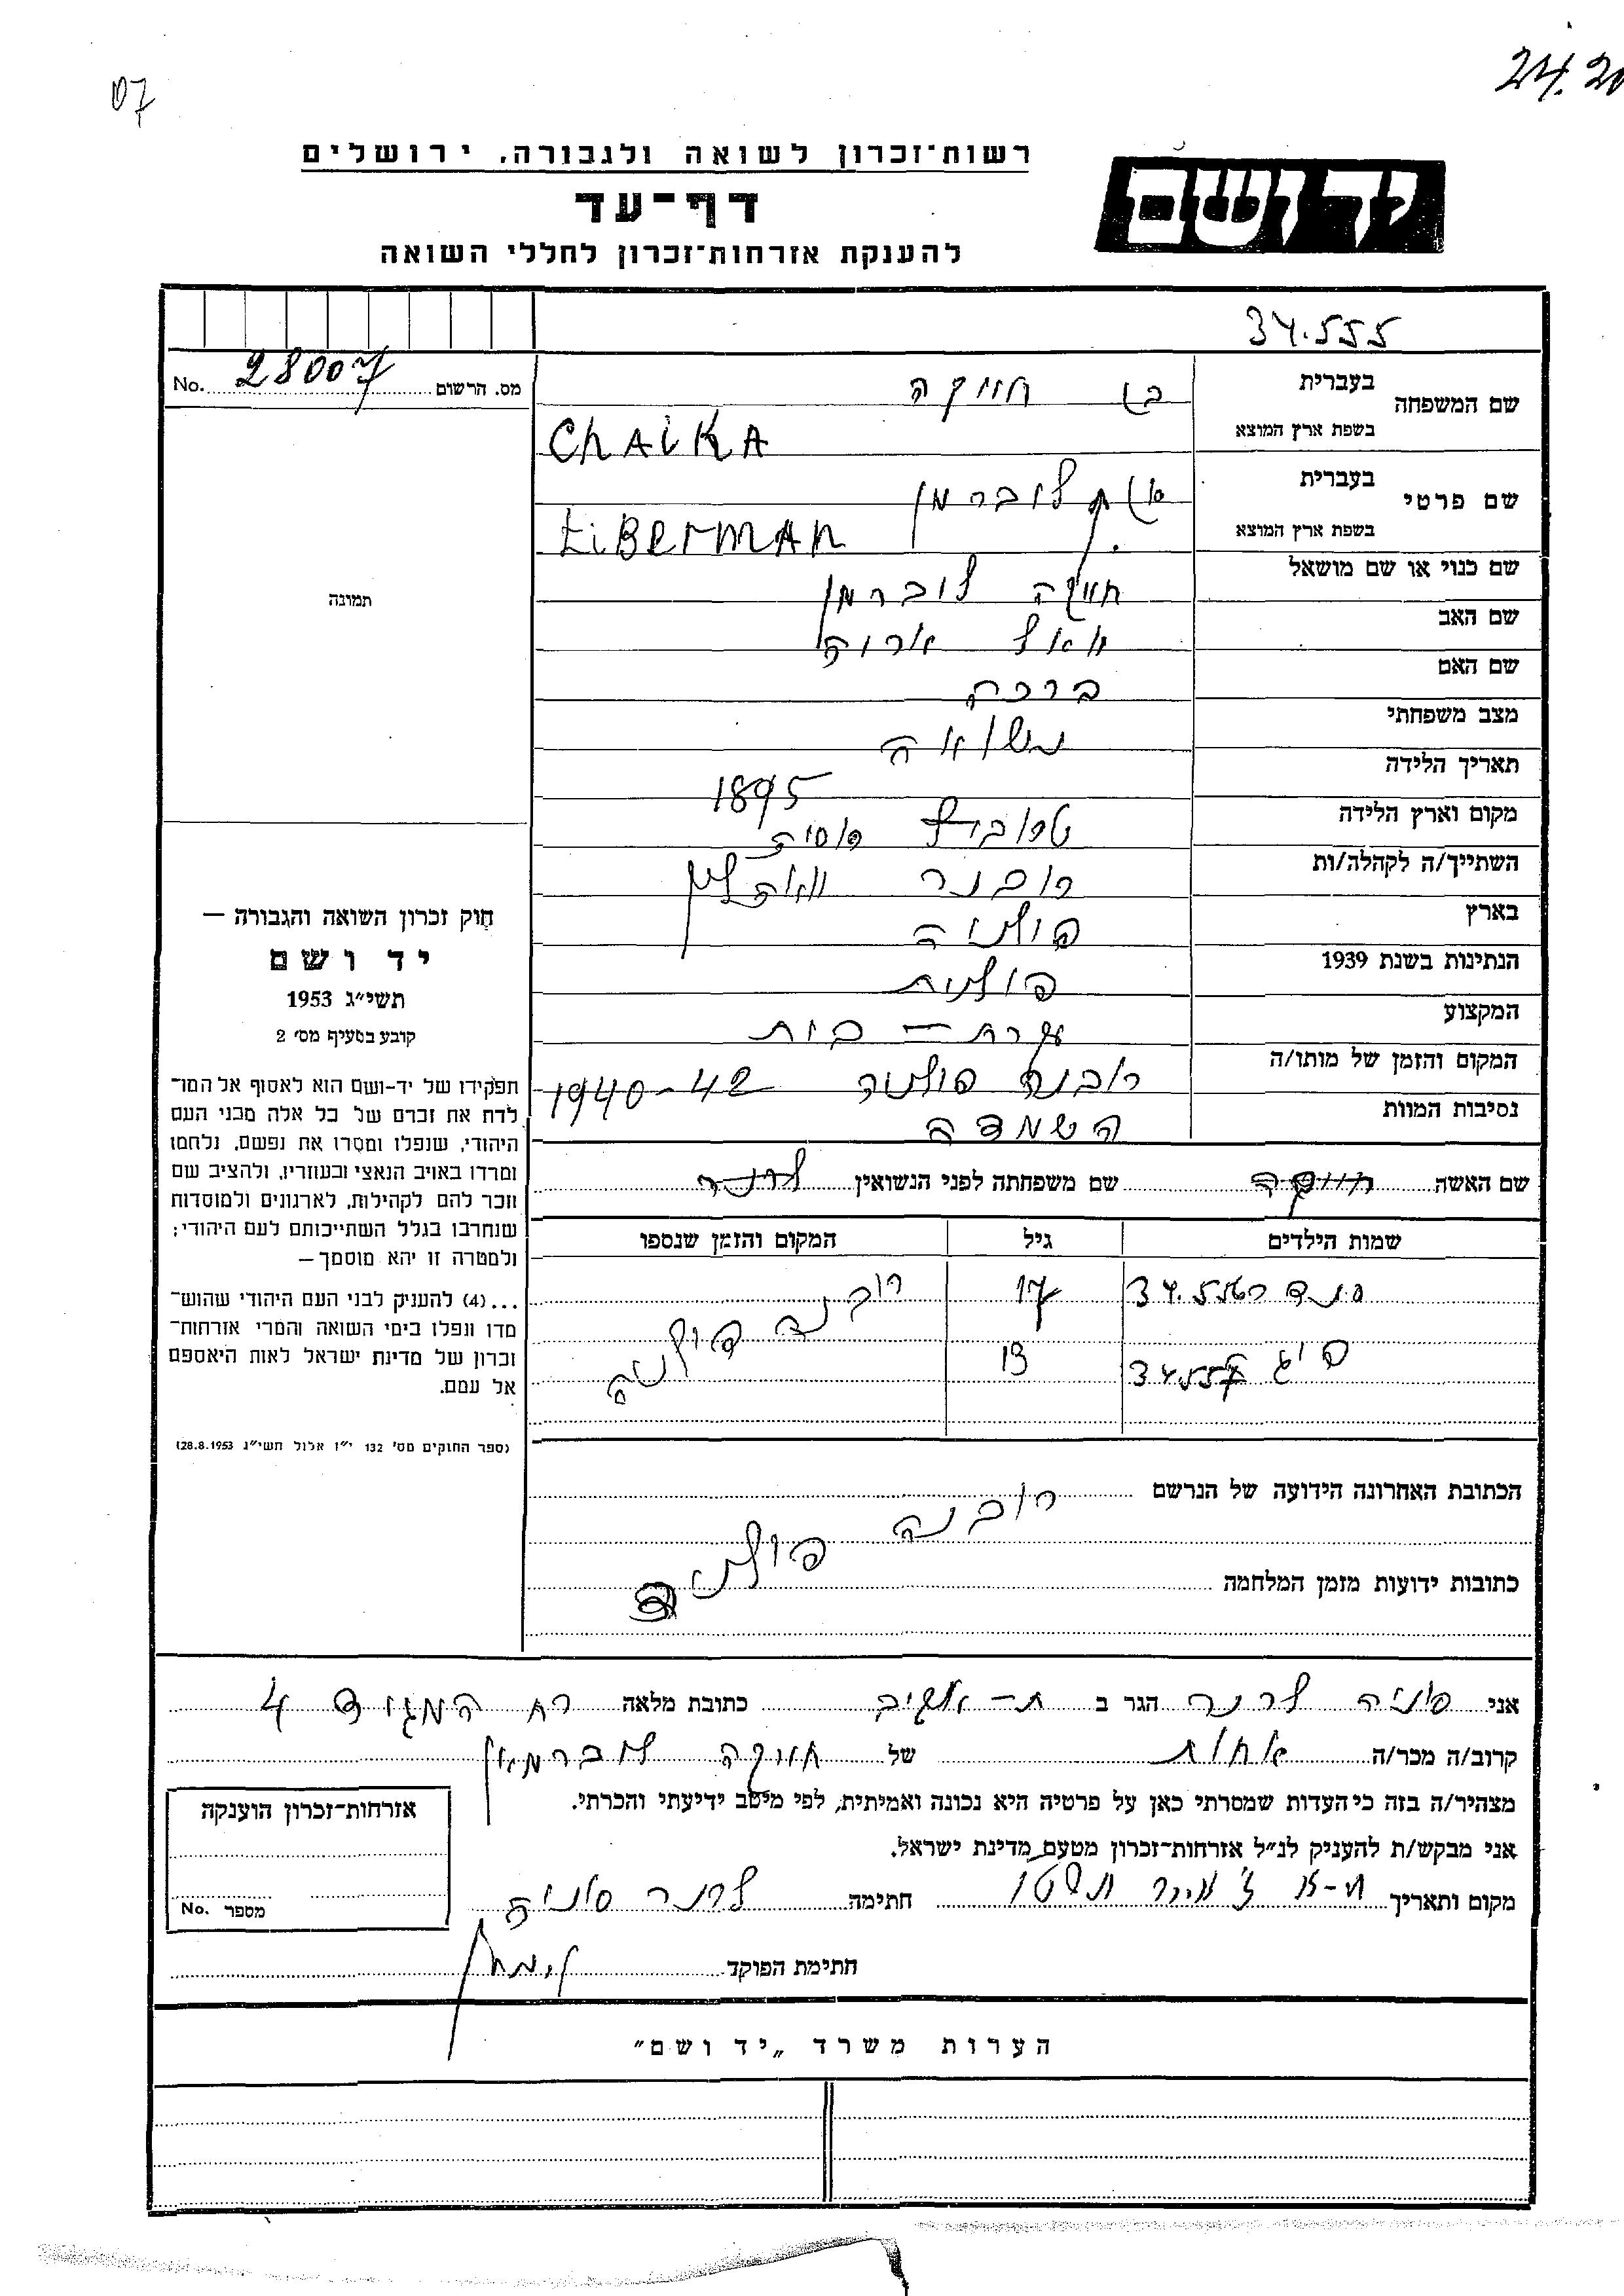 24.20
07
רשות־זכרון לשואה ולגבורה. ירושלים
יד ושם
דף־עד
להענקת אזרחות־זכרון לחללי השואה
34.555
מס. הרשום 28007 No.
שם המשפחה בעברית חייקה
בשפת ארץ המוצא CHAiKA
שם פרטי בעברית ליברמן
בשפת ארץ המוצא LiBerMAn
שם כנוי או שם מושאל חייקה ליברמן
שם האב אריה
שם האם ברכה
מצב משפחתי נשואה
תאריך הלידה 1895
מקום וארץ הלידה
השתייך/ה לקהלה/ות רובנה ווהלין
בארץ פולניה
הנתינות בשנת 1939 פולנית
המקצוע עקרת־בית
המקום והזמן של מותו/ה רובנה פולניה 1940-42
נסיבות המוות השמדה
תמונה
חוק זכרון השואה והגבורה —
יד ושם
תשי״ג 1953
קובע בסעיף מס׳ 2
תפקידו של יד-ושם הוא לאסוף אל המו־
לדת את זכרם של כל אלה מבני העם
היהודי, שנפלו ומסרו את נפשם, נלחמו
ומרדו באויב הנאצי ובעוזריו, ולהציב שם
וזכר להם לקהילות, לארגונים ולמוסדות
שנחרבו בגלל השתייכותם לעם היהודי;
ולמטרה זו יהא מוסמך —
...(4) להענק לבני העם היהודי שהוש־
מדו ונפלו בימי השואה והמרי אזרחות־
זכרון של מדינת ישראל לאות היאספם
אל עמם.
(ספר החוקים מס׳ 132 י״ז אלול תשי״ג 28.8.1953)
שם האשה חייקה שם משפחתה לפני הנשואין לרנר
שמות הילדים גיל המקום והזמן שנספו
34.556 17 רובנה פולניה
34.557 13
הכתובת האחרונה הידועה של הנרשם רובנה פולניה
כתובות ידועות מזמן המלחמה
אני סוניה לרנר הגר ב ת-אביב כתובת מלאה רח המגיד 4
קרוב/ה מכר/ה אחות של חייקה ליברמן
מצהיר/ה בזה כי העדות שמסרתי כאן על פרטיה היא נכונה ואמיתית, לפי מיטב ידיעתי והכרתי.
אני מבקש/ת להעניק לנ״ל אזרחות־זכרון מטעם מדינת ישראל.
מקום ותאריך ת-א חתימה לרנר סוניה
חתימת הפוקד
אזרחות־זכרון הוענקה
מספר No.
הערות משרד „יד ושם״